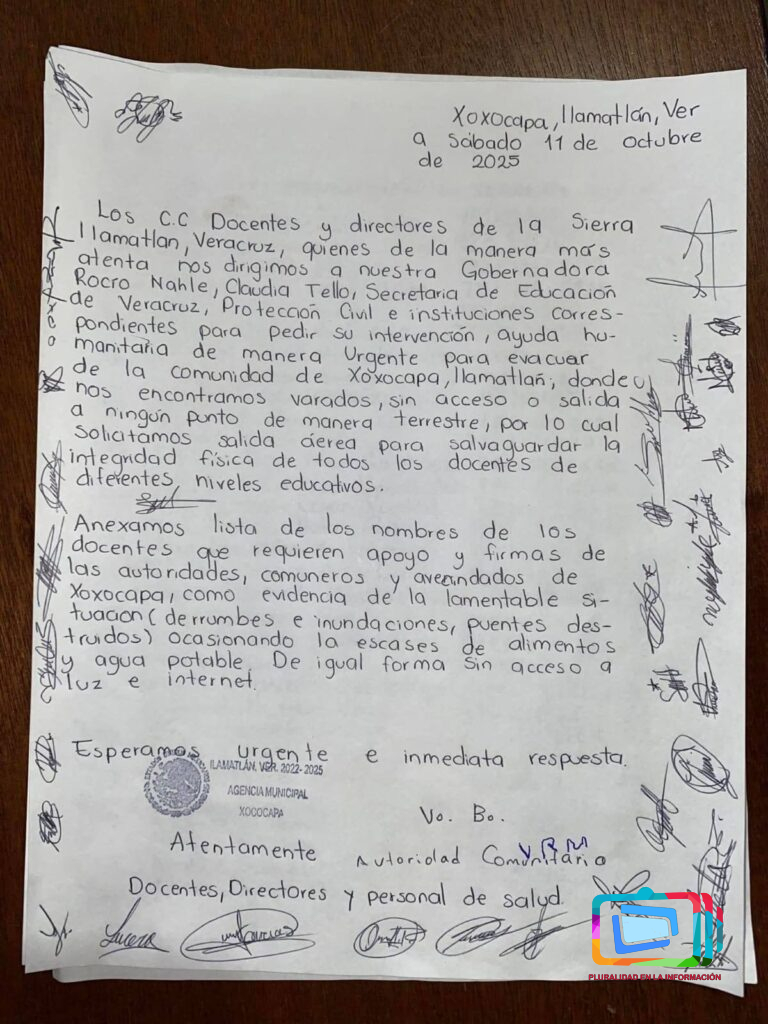 Xoxocapa, Ilamatlán, Ver
a Sábado 11 de Octubre
de 2025
Los C.C Docentes y directores de la Sierra
Ilamatlan, Veracruz, quienes de la manera más
atenta nos dirigimos a nuestra Gobernadora
Rocro Nahle, Claudia Tello, Secretaria de Educación
de Veracruz, Protección Civil e instituciones corres-
pondientes para pedir su intervención, ayuda hu-
manitaria de manera Urgente para evacuar
de la comunidad de Xoxocapa, Ilamatlañ, donde
nos encontramos varados, sin acceso o salida
a ningún punto de manera terrestre, por lo cual
Solicitamos salida áerea para salvaguardar la
integridad física de todos los docentes de
diferentes niveles educativos.
Anexamos lista de los nombres de los
docentes que requieren apoyo y firmas de
las autoridades, comuneros y avecindados de
Xoxocapa, como evidencia de la lamentable si-
tuación (derrumbes e inundaciones, puentes des-
truidos) ocasionando la escases de alimentos
y agua potable. De igual forma sin acceso a
luz e internet.
Esperamos urgente e inmediata respuesta.
ILAMATLÁN, VER. 2022-2025
AGENCIA MUNICIPAL
XOCOCAPA
Vo. Bo.
Atentamente
Autoridad Comunitaria
V R M
Docentes, Directores y personal de salud.
Lucero
PLURALIDAD EN LA INFORMACIÓN